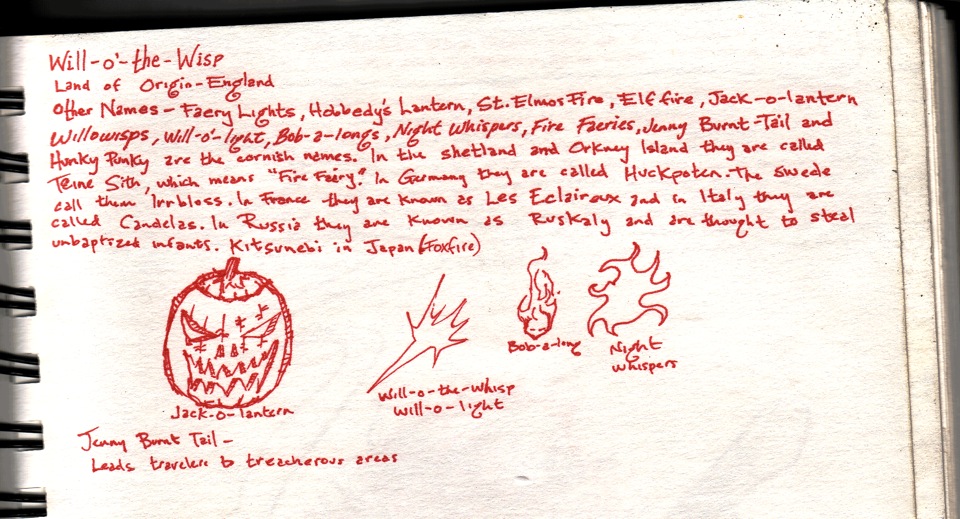 Will-o'-the-Wisp
Land of Origin-England
Other Names - Faery Lights, Hobbedy's Lantern, St. Elmos Fire, Elf fire, Jack-o-lantern
Willowisps, Will-o'-light, Bob-a-longs, Night Whispers, Fire Faeries, Jenny Burnt-Tail and
Hunky Punky are the cornish names. In the shetland and Orkney Island they are called
Teine Sith, which means "Fire Fairy." In Germany they are called Huckpoten. The Swede
call them Irrbloss. In France they are known as Les Eclaireux and in Italy they are
called Candelas. In Russia they are known as Ruskaly and are thought to steal
unbaptized infants. Kitsunebi in Japan (Foxfire)
Jack-o-lantern
Will-o-the-Whisp
Will-o-light
Bob-a-long
Night
Whispers
Jenny Burnt Tail -
Leads travelers to treacherous areas